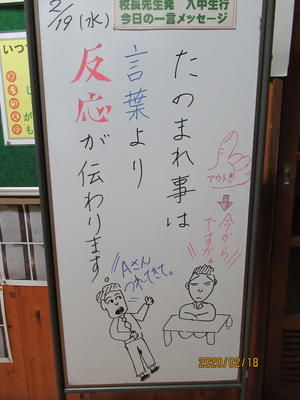 校長先生発 八中生行
今日の一言メッセージ
2/19(水)
たのまれ事は
言葉より
反応が伝わります。
アウト!!
今から
ですか。
Aさん
つれてきて。
いつ
2020/02/18